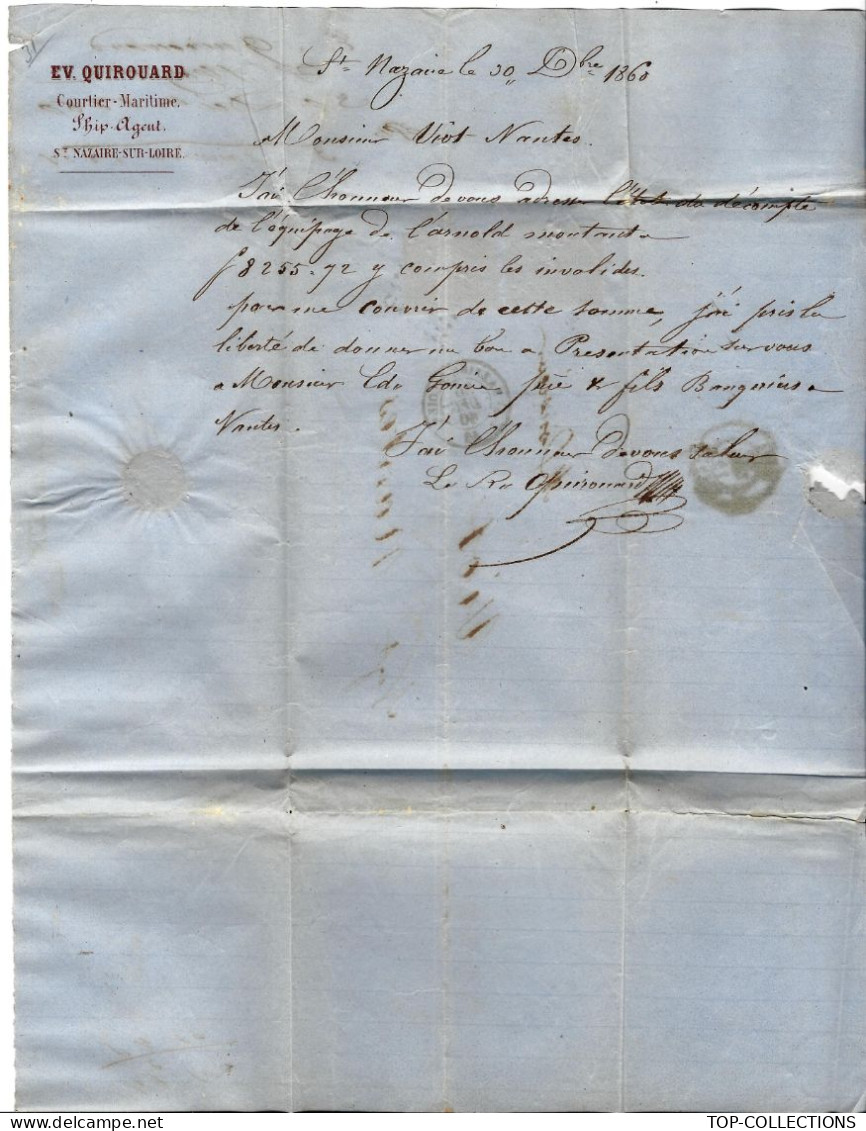 EV. QUIROUARD
Courtier-Maritime.
Ship-Agent.
ST NAZAIRE-SUR-LOIRE.
St Nazaire le 30 Dbre 1860
Monsieur Viot Nantes.
J'ai l'honneur de vous adresser l'état du décompte
de l'équipage de l'arnold montant a
f 8255.72 y compris les invalides.
pour me couvrir de cette somme, j'ai pris la
liberté de donner un bon a Presentation sur vous
a Monsieur père & fils Banquiers a
Nantes.
J'ai l'honneur de vous saluer
Quirouard
www.delcampe.net
TOP-COLLECTIONS